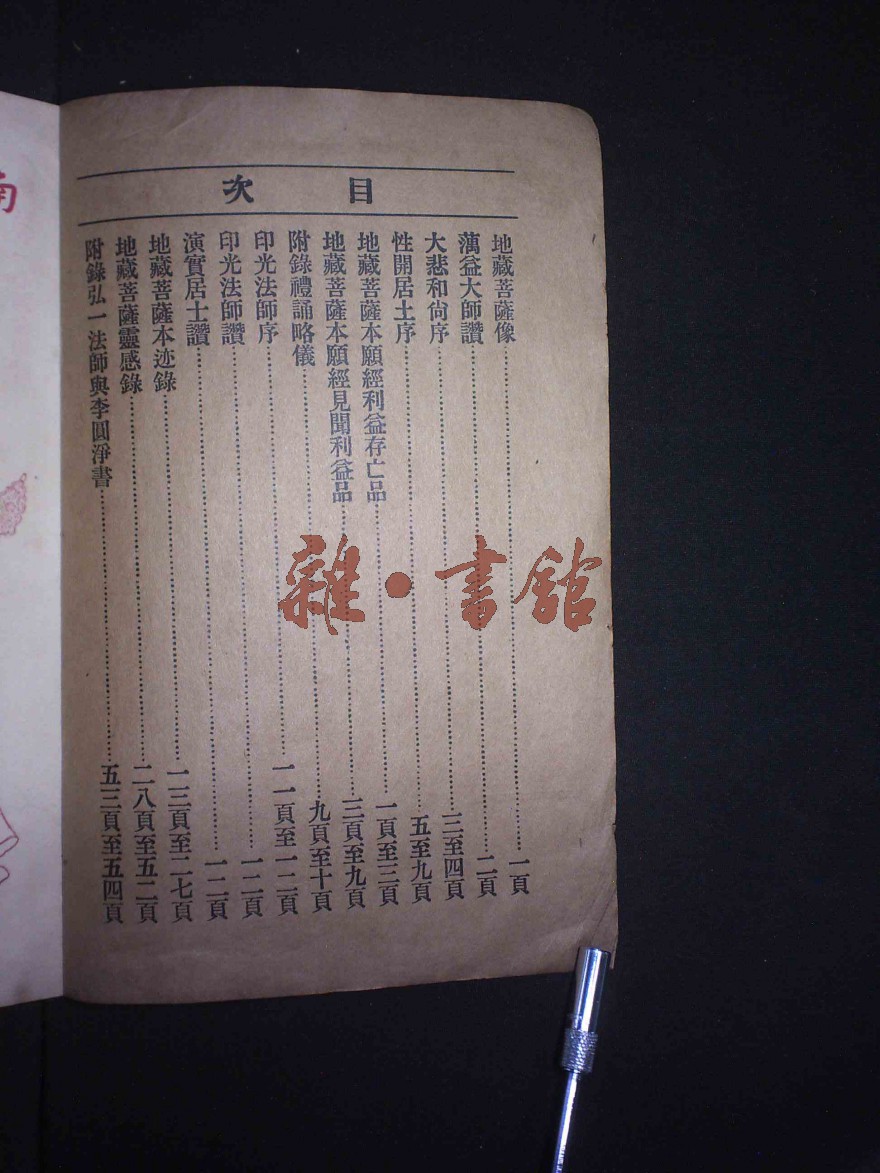 目次
地藏菩薩像……一頁
蕅益大師讚……二頁
大悲和尙序……三至四頁
性開居士序……五至九頁
地藏菩薩本願經利益存亡品……一頁至三頁
地藏菩薩本願經見聞利益品……三頁至九頁
附錄禮誦略儀……九頁至十頁
印光法師序……一一頁至一二頁
印光法師讚……一二頁
演實居士讚……一二頁
地藏菩薩本迹錄……一三頁至二七頁
地藏菩薩靈感錄……二八頁至五二頁
附錄弘一法師與李圓淨書……五三頁至五四頁
雜·書館
南